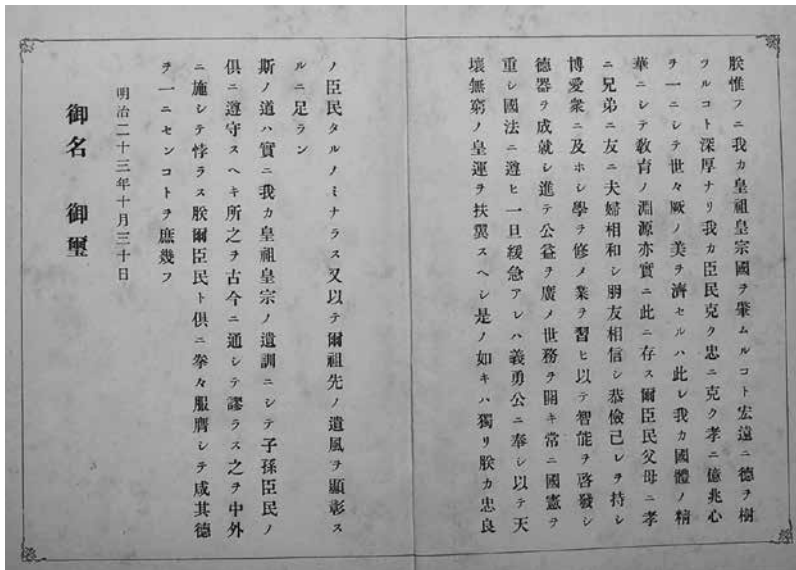 朕惟フニ我カ皇祖皇宗國ヲ肇ムルコト宏遠ニ德ヲ樹
ツルコト深厚ナリ我カ臣民克ク忠ニ克ク孝ニ億兆心
ヲ一ニシテ世々厥ノ美ヲ濟セルハ此レ我カ國體ノ精
華ニシテ敎育ノ淵源亦實ニ此ニ存ス爾臣民父母ニ孝
ニ兄弟ニ友ニ夫婦相和シ朋友相信シ恭儉己レヲ持シ
博愛衆ニ及ホシ學ヲ修メ業ヲ習ヒ以テ智能ヲ啓發シ
德器ヲ成就シ進テ公益ヲ廣メ世務ヲ開キ常ニ國憲ヲ
重シ國法ニ遵ヒ一旦緩急アレハ義勇公ニ奉シ以テ天
壤無窮ノ皇運ヲ扶翼スヘシ是ノ如キハ獨リ朕カ忠良
ノ臣民タルノミナラス又以テ爾祖先ノ遺風ヲ顯彰ス
ルニ足ラン
斯ノ道ハ實ニ我カ皇祖皇宗ノ遺訓ニシテ子孫臣民ノ
俱ニ遵守スヘキ所之ヲ古今ニ通シテ謬ラス之ヲ中外
ニ施シテ悖ラス朕爾臣民ト俱ニ拳々服膺シテ咸其德
ヲ一ニセンコトヲ庶幾フ
明治二十三年十月三十日
御名 御璽